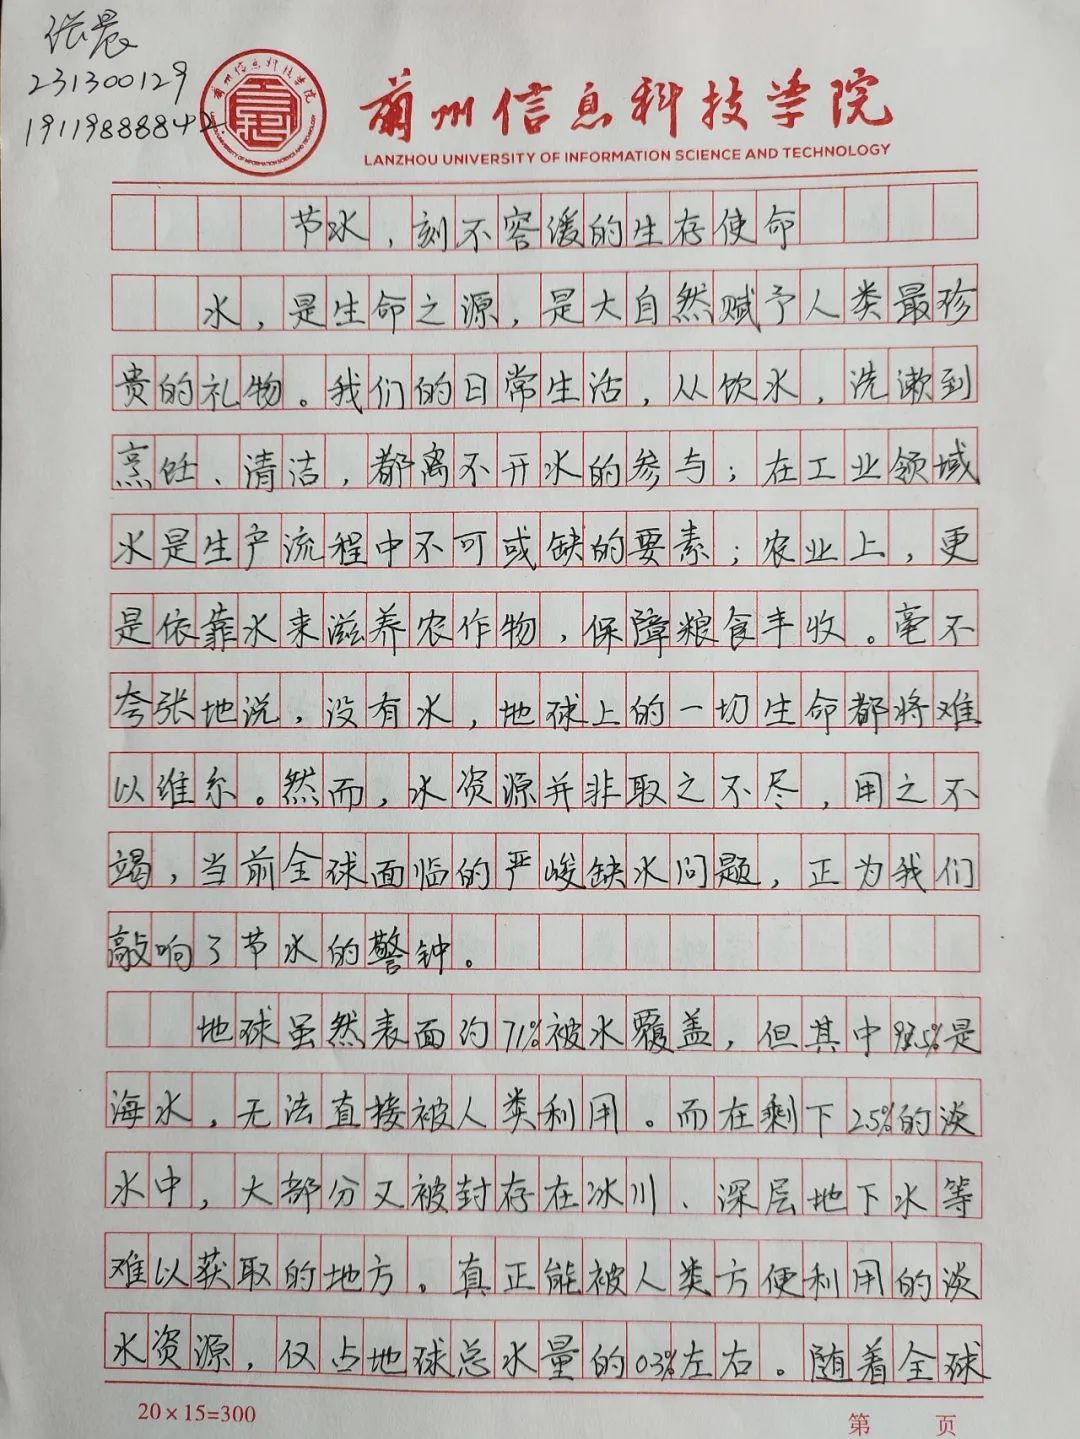 张晨
231300129
19119888842
兰州信息科技学院
LANZHOU UNIVERSITY OF INFORMATION SCIENCE AND TECHNOLOGY
节水，刻不容缓的生存使命
水，是生命之源，是大自然赋予人类最珍
贵的礼物。我们的日常生活，从饮水，洗漱到
烹饪、清洁，都离不开水的参与；在工业领域
水是生产流程中不可或缺的要素；农业上，更
是依靠水来滋养农作物，保障粮食丰收。毫不
夸张地说，没有水，地球上的一切生命都将难
以维系。然而，水资源并非取之不尽，用之不
竭，当前全球面临的严峻缺水问题，正为我们
敲响了节水的警钟。
地球虽然表面约71%被水覆盖，但其中97.5%是
海水，无法直接被人类利用。而在剩下2.5%的淡
水中，大部分又被封存在冰川、深层地下水等
难以获取的地方。真正能被人类方便利用的淡
水资源，仅占地球总水量的0.3%左右。随着全球
20×15=300
第 页